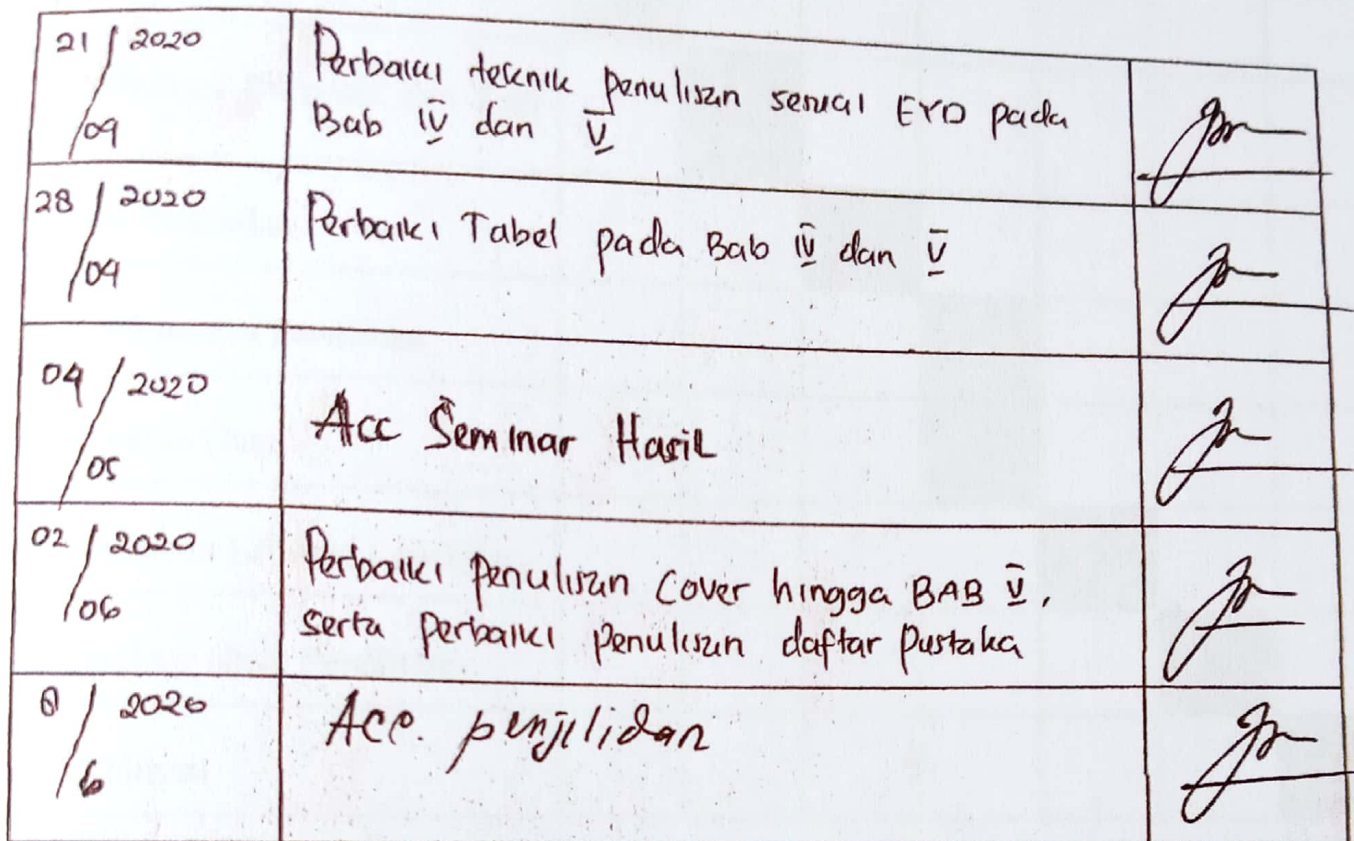 21/09 2020
Perbaiki teknik penulisan sesuai EYD pada
Bab IV dan V
28/04 2020
Perbaiki Tabel pada Bab IV dan V
04/05 2020
Acc Seminar Hasil
02/06 2020
Perbaiki penulisan Cover hingga BAB V,
serta perbaiki penulisan daftar pustaka
/6 2020
Acc. penjilidan